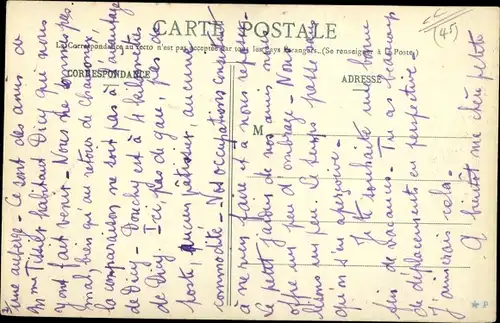 CARTE POSTALE
La Correspondance au recto n'est pas acceptée par tous les pays étrangers. (Se renseigner à la Poste)
CORRESPONDANCE
ADRESSE
M
(45)
une auberge - Ce sont des amis de
M. habitant Dicy qui nous
y ont fait venir - Nous ne sommes pas
mal, bien qu'au retour de Chamonix
la comparaison ne soit pas à l'avantage
de Dicy - Douchy est à 4 kilomètres
de Dicy. Ici pas de gare, pas de
poste, aucun pâtissier aucune
commodité - Nos occupations consistent
à ne rien faire et à nous reposer
Le petit jardin de nos amis nous
offre un peu d'ombrage - Nous
lisons un peu. Le temps passe sans
qu'on s'en aperçoive -
Je te souhaite une bonne
fin de vacances - Tu as beaucoup
de déplacements en perspective -
J'aimerais cela -
A bientôt ma chère petite